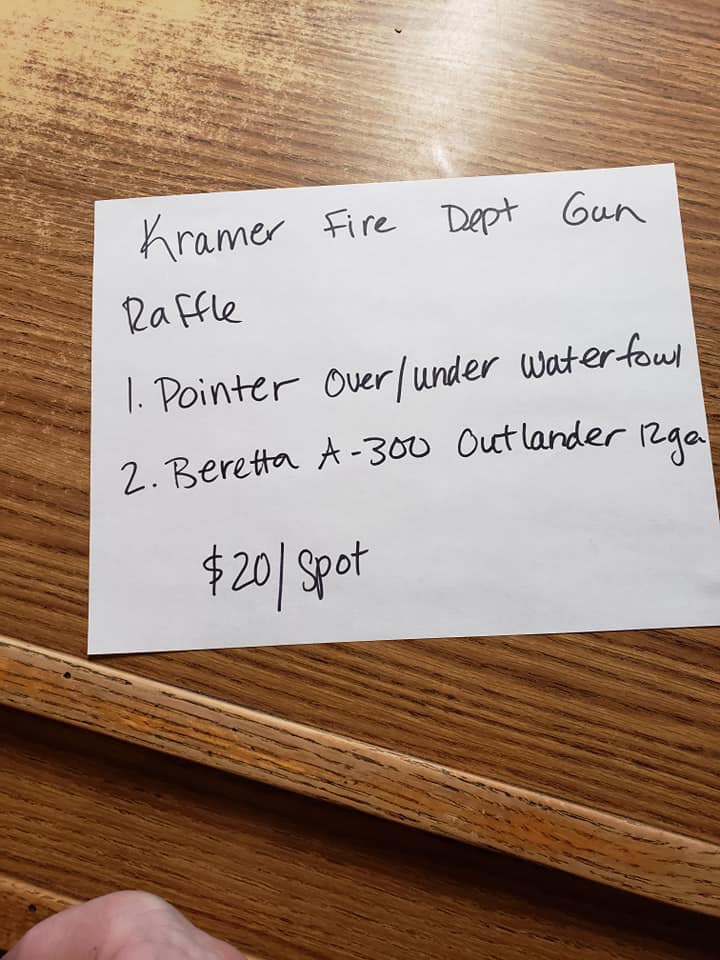 Kramer Fire Dept Gun
Raffle
1. Pointer Over/under Waterfowl
2. Beretta A-300 Outlander 12ga
$20/Spot